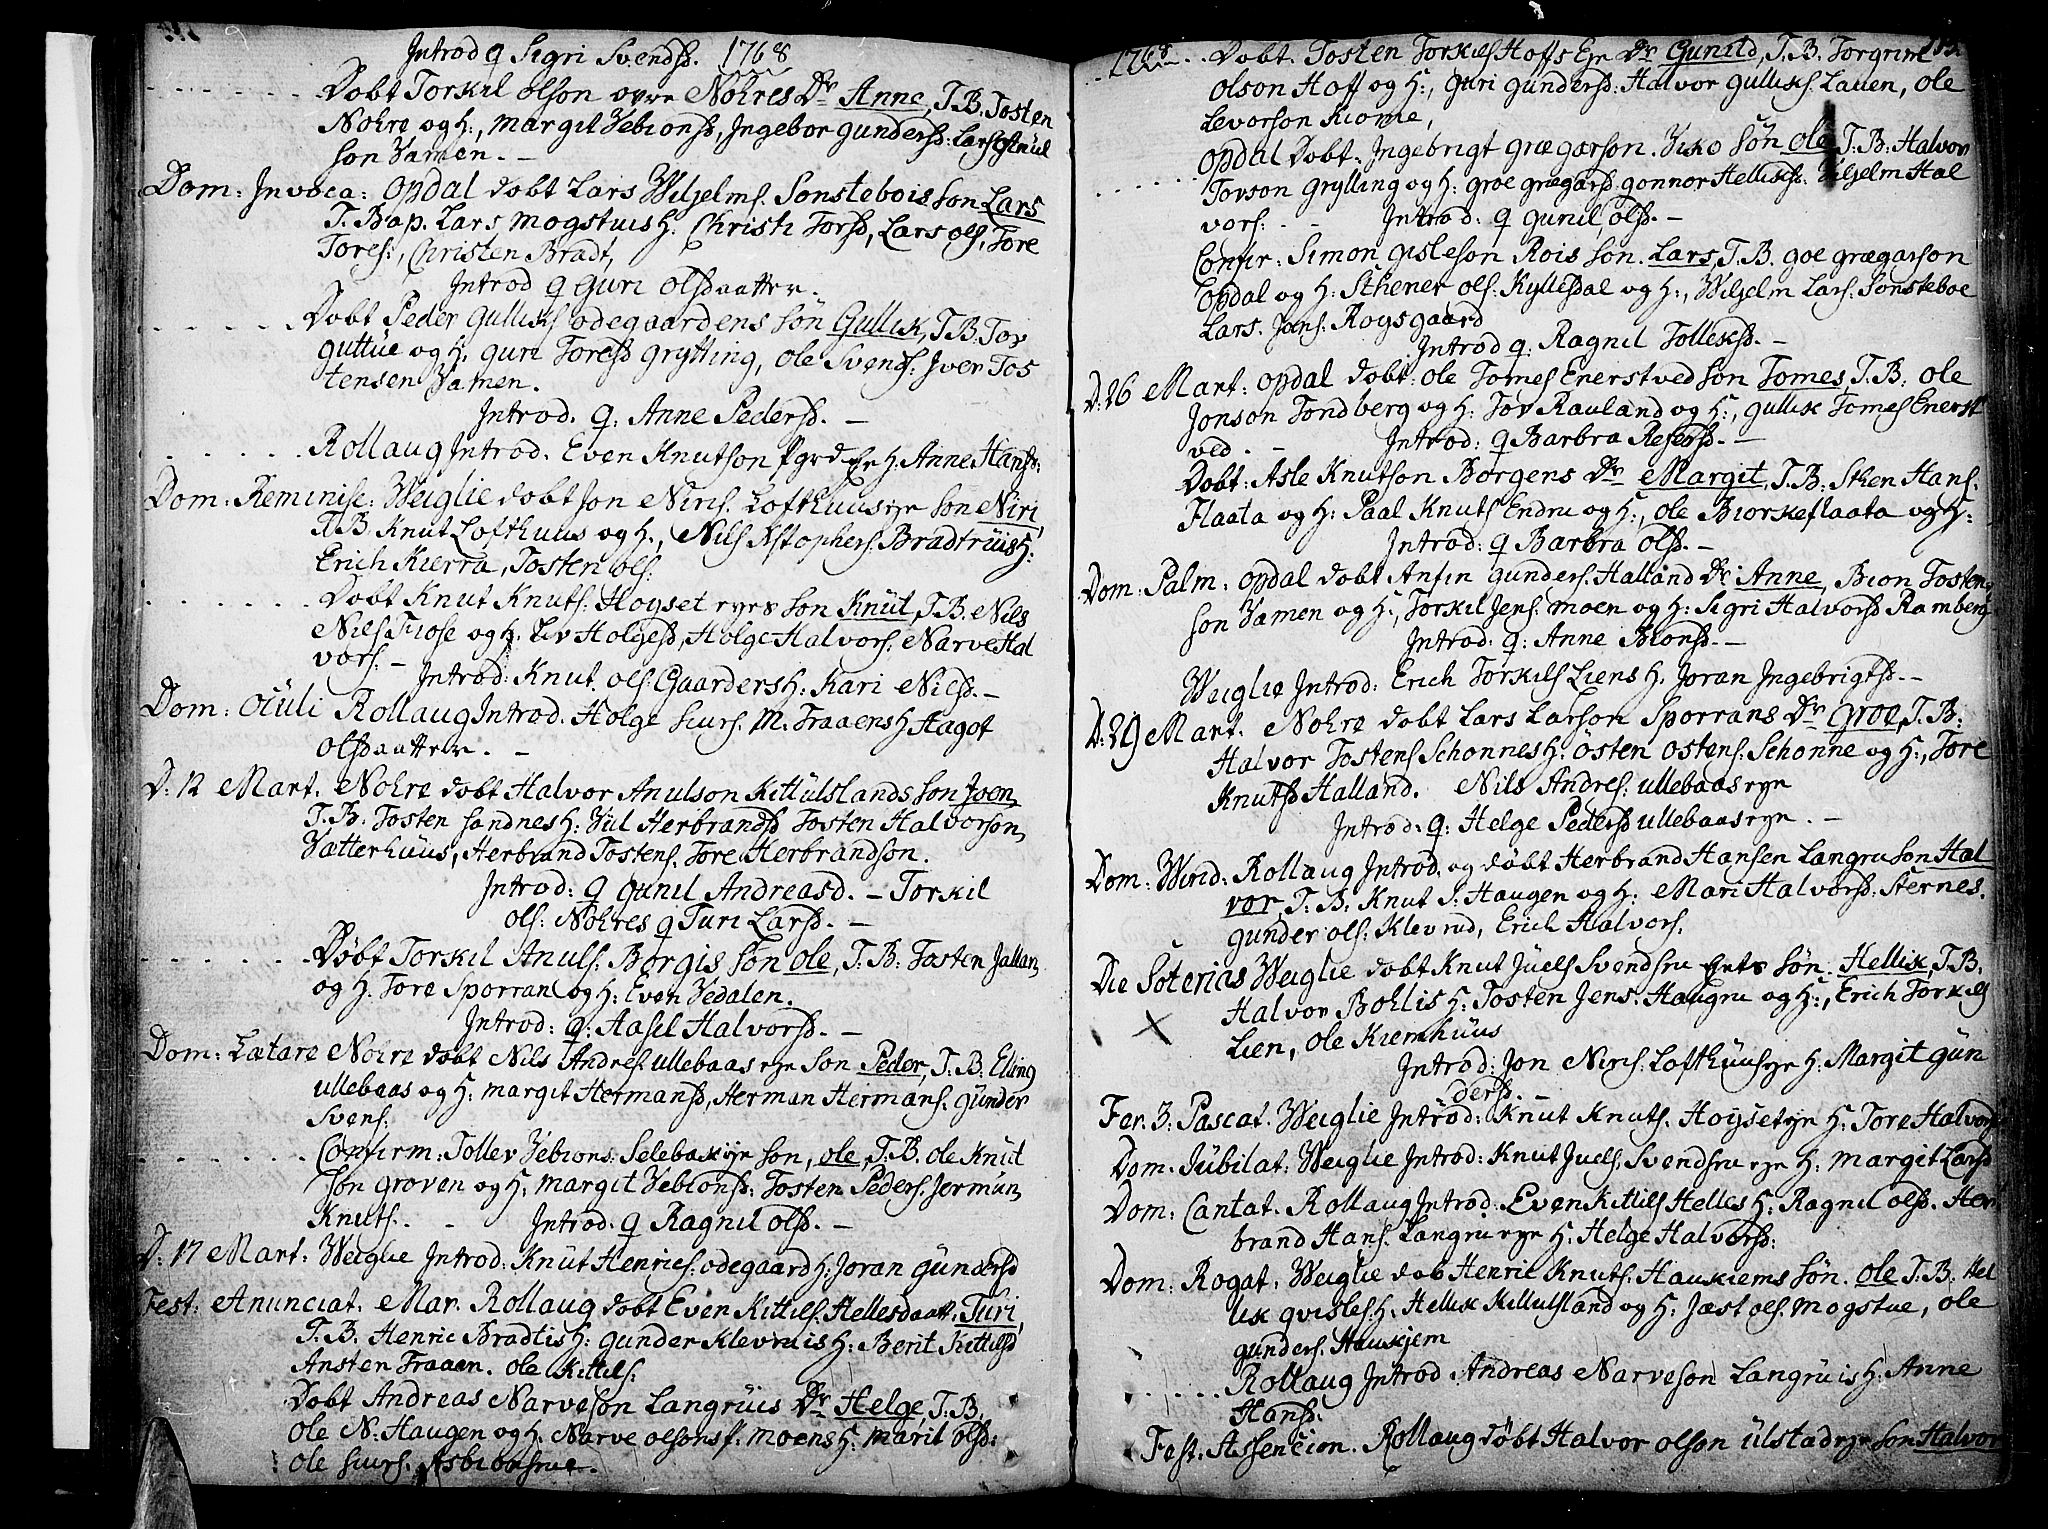 Introd q Sigri Svendsd. 1768
Døbt Torkil olson øvre Nohres Dr Anne, T.B. Tosten
Nohre og H:, Margit Vebionsd, Ingebor gundersd: Lars Knul
son Vamen. -
Dom: Invoca: Opdal døbt Lars Wiljelms. Sønstebois søn Lars
T. Bap. Lars Mogstuis H. Christi Torsd, Lars ols, Tore
Tores:, Christen Bradt,
Introd q Guri olsdaatter.
Døbt Peder Gulliks ødegaardens søn Gullik, T.B. Tov
guttue og H. guri Toresd grytting, Ole Svends: Iver Tos
tensen Vamen.
Introd. q: Anne Pedersd. -
Rollaug Introd. Even Knutson H. Anne Hansd:
Dom: Reminise: Weiglie døbt Jon Niris. Lofthuus eje søn Niri,
T.B. Knut Lofthuus og H., Nils Xstophers. Bradtruis H:
Erich Kierra, Tosten ols:
Døbt Knut Knuts: Høyset ejes søn Knut, T.B. Nils
Niels Fiose og H. Liv Holgesd, Holge Halvors. Narve Hal
vors. - Introd: Knut ols: Gaarders H: Kari Nilsd. -
Dom: Oculi Rollaug Introd. Holge siurs. M. Traaens H Hagot
olsdaatter. -
D: 12 Mart. Nohre døbt Halvor Anulson Kittulslands søn Joen,
T.B. Tosten sandnes H: Vil Herbrandsd Tosten Halvorson,
Vatterhuus, Herbrand Tostens. Tore Herbrandson.
Introd: q gunil Andreasd. - Torkil
ols: Nohres q Turi Larsd. -
Døbt Torkil Anuls: Borgis søn ole, T.B: Tosten Jallan
og H. Tore Sporran og H: Even Vedalen.
Introd: q: Aasel Halvorsd. -
Dom: Lætare Nohre døbt Nils Andres ullebaas eje søn Peder, T.B: Elling
ullebaas og H: margit Hermansd, Herman Hermans. gunder
Svens:
Confirm: Tollev Vebions: Selebak eje søn, ole, T.B. ole Knut
søn groven og H: margit Vebionsd: Tosten Peders. Jermun,
Knuts. - Introd. q Ragnil olsd. -
D: 17 Mart: Weiglie Introd: Knut Henrics. ødegaard H: Joran Gundersd
Fest: Anunciat. Mar. Rollaug døbt Even Kittils. Hellesdaatt. Turi,
T.B. Henric Bradtis H: gunder Klevruis H: Berit Kittilsd
Ansten Traaen. Ole Kittils:
Døbt Andreas Narveson Langruis Dr Helge, T.B.
Ole N. Haugen og H. Narve olsons f. moens H. marit olsd:
Ole siurs. Asbiornsrue.
1768 Døbt. Tosten Torkils Hoffs Eje Dr Gunild, T.B. Torgrim
olson Hoff og H:, guri gundersd: Halvor gulliks. Lauen, ole
Levorson Kiome,
Opdal Døbt. Ingebrigt grægarson. Viko søn ole T.B: Halvor
Torson grytting og H: groe grægarsd gonnor Helliksd. Wiljelm Hal
vors: - Introd: q gunil, olsd. -
Confir: Simon gisleson Rois søn. Lars, T.B. goe grægarson
Opdal og H: Sthener ols: Kyllesdal og H:, Wiljelm Lars. Sønsteboe
Lars. Jøns. Roysgaard
Introd q: Ragnil Tolleksd. -
D: 26 Mart: Opdal døbt: Ole Tomes Enerstved søn Tomes, T.B: Ole
Jonson Tondberg og H: Tov Rauland og H:, gullik Tomes Enerst
ved. - Introd: q Barbra Resersd. -
Døbt: Asle Knutson Borgens Dr Margit, T.B: Sthen Hans.
Flaata og H: Paal Knuts Endru og H:, ole Biorkeflaata og H:
Introd: q Barbra olsd. -
Dom: Palm: Opdal døbt Anfin gunders. Halland Dr Anne, Bion Tosten,
son Vamen og H:, Torkil Jens. moen og H: Sigri Halvorsd Ramberg
Introd: q: Anne Bionsd. -
Weiglie Introd: Erich Torkils Liens H. Joran Ingebrigtsd. -
D: 29 Mart. Nohre døbt Lars Larson Sporrans Dr Groe, T.B:
Halvor Tostens Schønnes H: Østen Østens. Schønne og H:, Tore
Knutsd Halland. Nils Andres: ullebaas eje
Introd: q: Helge Pedersd ullebaas eje. -
Dom: Wirid: Rollaug Introd, og døbt Herbrand Hansen Langru søn Hal
vor, T.B. Knut J. Haugen og H: Mari Halvorsd: Sternes.
gunder ols: Klevrud, Erich Halvors.
Die Soterias Weiglie døbt Knut Juels Svendsru Ejets søn. Hellik, T.B.
Halvor Bohlis H: Tosten Jens. Haugru og H:, Erich Torkils
Lien, Ole Kiemhuus
Introd: Jon Niris. Lofthuus eje H: Margit Gun
dersd. -
Fer. 3: Pascat. Weiglie Introd: Knut Knuts. Høyset eje H: Tore Halvorsd
Dom: Jubilat: Weiglie Introd: Knut Juels. Svendsru eje H: margit Larsd
Dom: Cantat. Rollaug Introd. Even Kittils Helles H: Ragnil olsd. Her
brand Hans. Langru eje H: Helge Halvorsd:
Dom: Rogat: Weiglie døb Henric Knuts. Haukiems søn. ole T.B: Hel
lik qvisles H: Hellik Killulsland og H: Jæst ols. mogstue, ole
gunders. Haukjem
Rollaug Introd Andreas Narveson Langruis H: Anne
Hansd:
Fest. Assencion. Rollaug døbt Halvor olson Ulstad eje søn Halvor